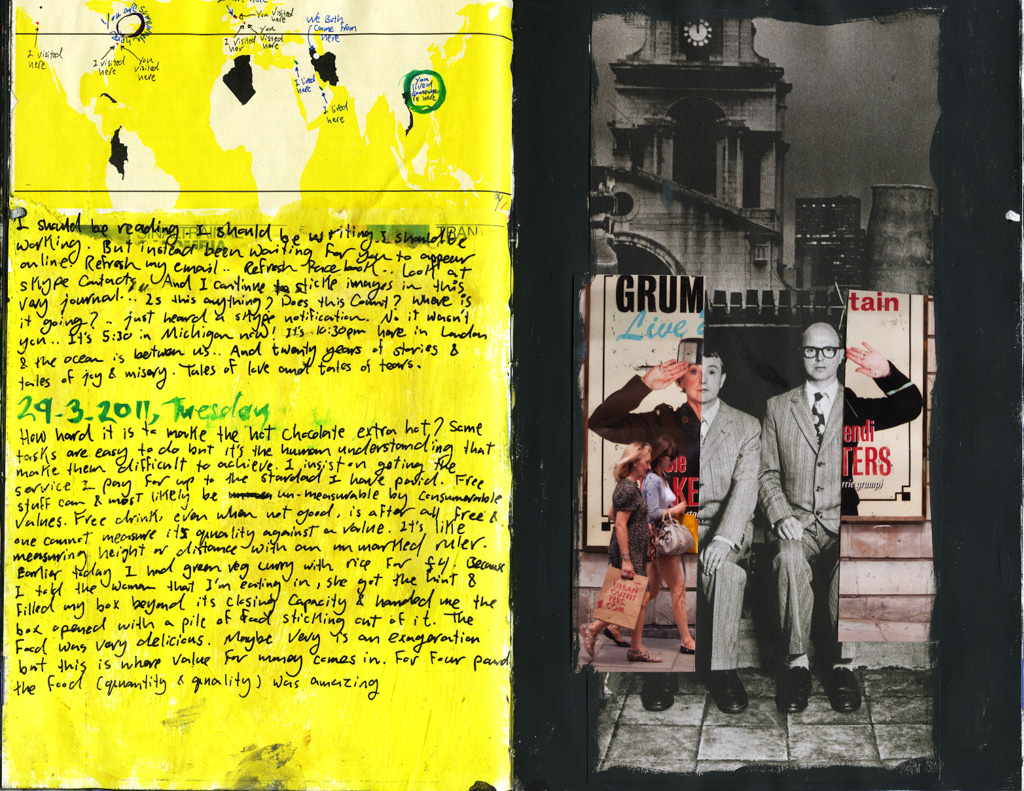 You are
here
You visited
here
I visited
here
You
visited
here
We Both
came from
here
I visited
here
I visited
here
You
visited
here
I lived
here
I lived
here
You
lived
someplace
here
I should be reading. I should be writing. I should be
working. But instead been waiting for you to appear
online. Refresh my email.. Refresh Facebook.. Look at
skype contacts.. And I continue to stickie images in this
very journal... Is this anything? Does this count? Where is
it going? .. just heard a skype notification. No it wasn't
you.. It's 5:30 in Michigan now! It's 10:30pm here in London
& the ocean is between us.. And twenty years of stories &
tales of joy & misery. Tales of love and tales of tears.
29-3-2011, Tuesday
How hard it is to make the hot chocolate extra hot? Some
tasks are easy to do but it's the human understanding that
make them difficult to achieve. I insist on geting the
service I pay for up to the standard I have paid. Free
stuff can & most likely be un-measurable by consumerable
values. Free drink, even when not good, is after all free &
one cannot measure its quality against a value. It's like
measuring height or distance with an unmarked ruler.
Earlier today I had green veg curry with rice for £4. Because
I told the woman that I'm eating in, she got the hint &
filled my box beyond its closing capacity & handed me the
box opened with a pile of food sticking out of it. The
food was very delicious. Maybe very is an exageration
but this is where value for money comes in. For four pound
the food (quantity & quality) was amazing
GRUM
Live
tain
endi
TERS
rrie grump)
sie
KE
URBAN
OUTFIT
TERS.
COM